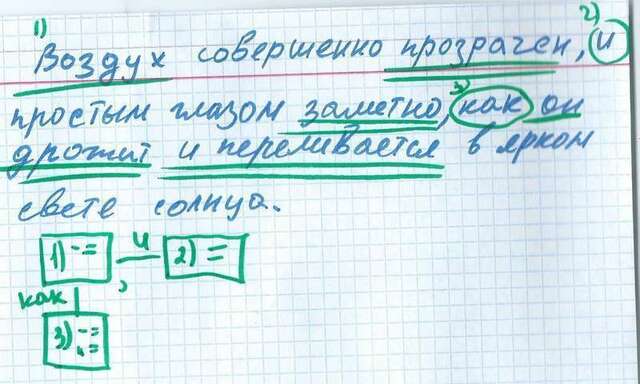 1) 2)
Воздух совершенно прозрачен, и
3)
простым глазом заметно, как он
дрожит и переливается в ярком
свете солнца.
1) -= , и 2) =
как
3) -= =